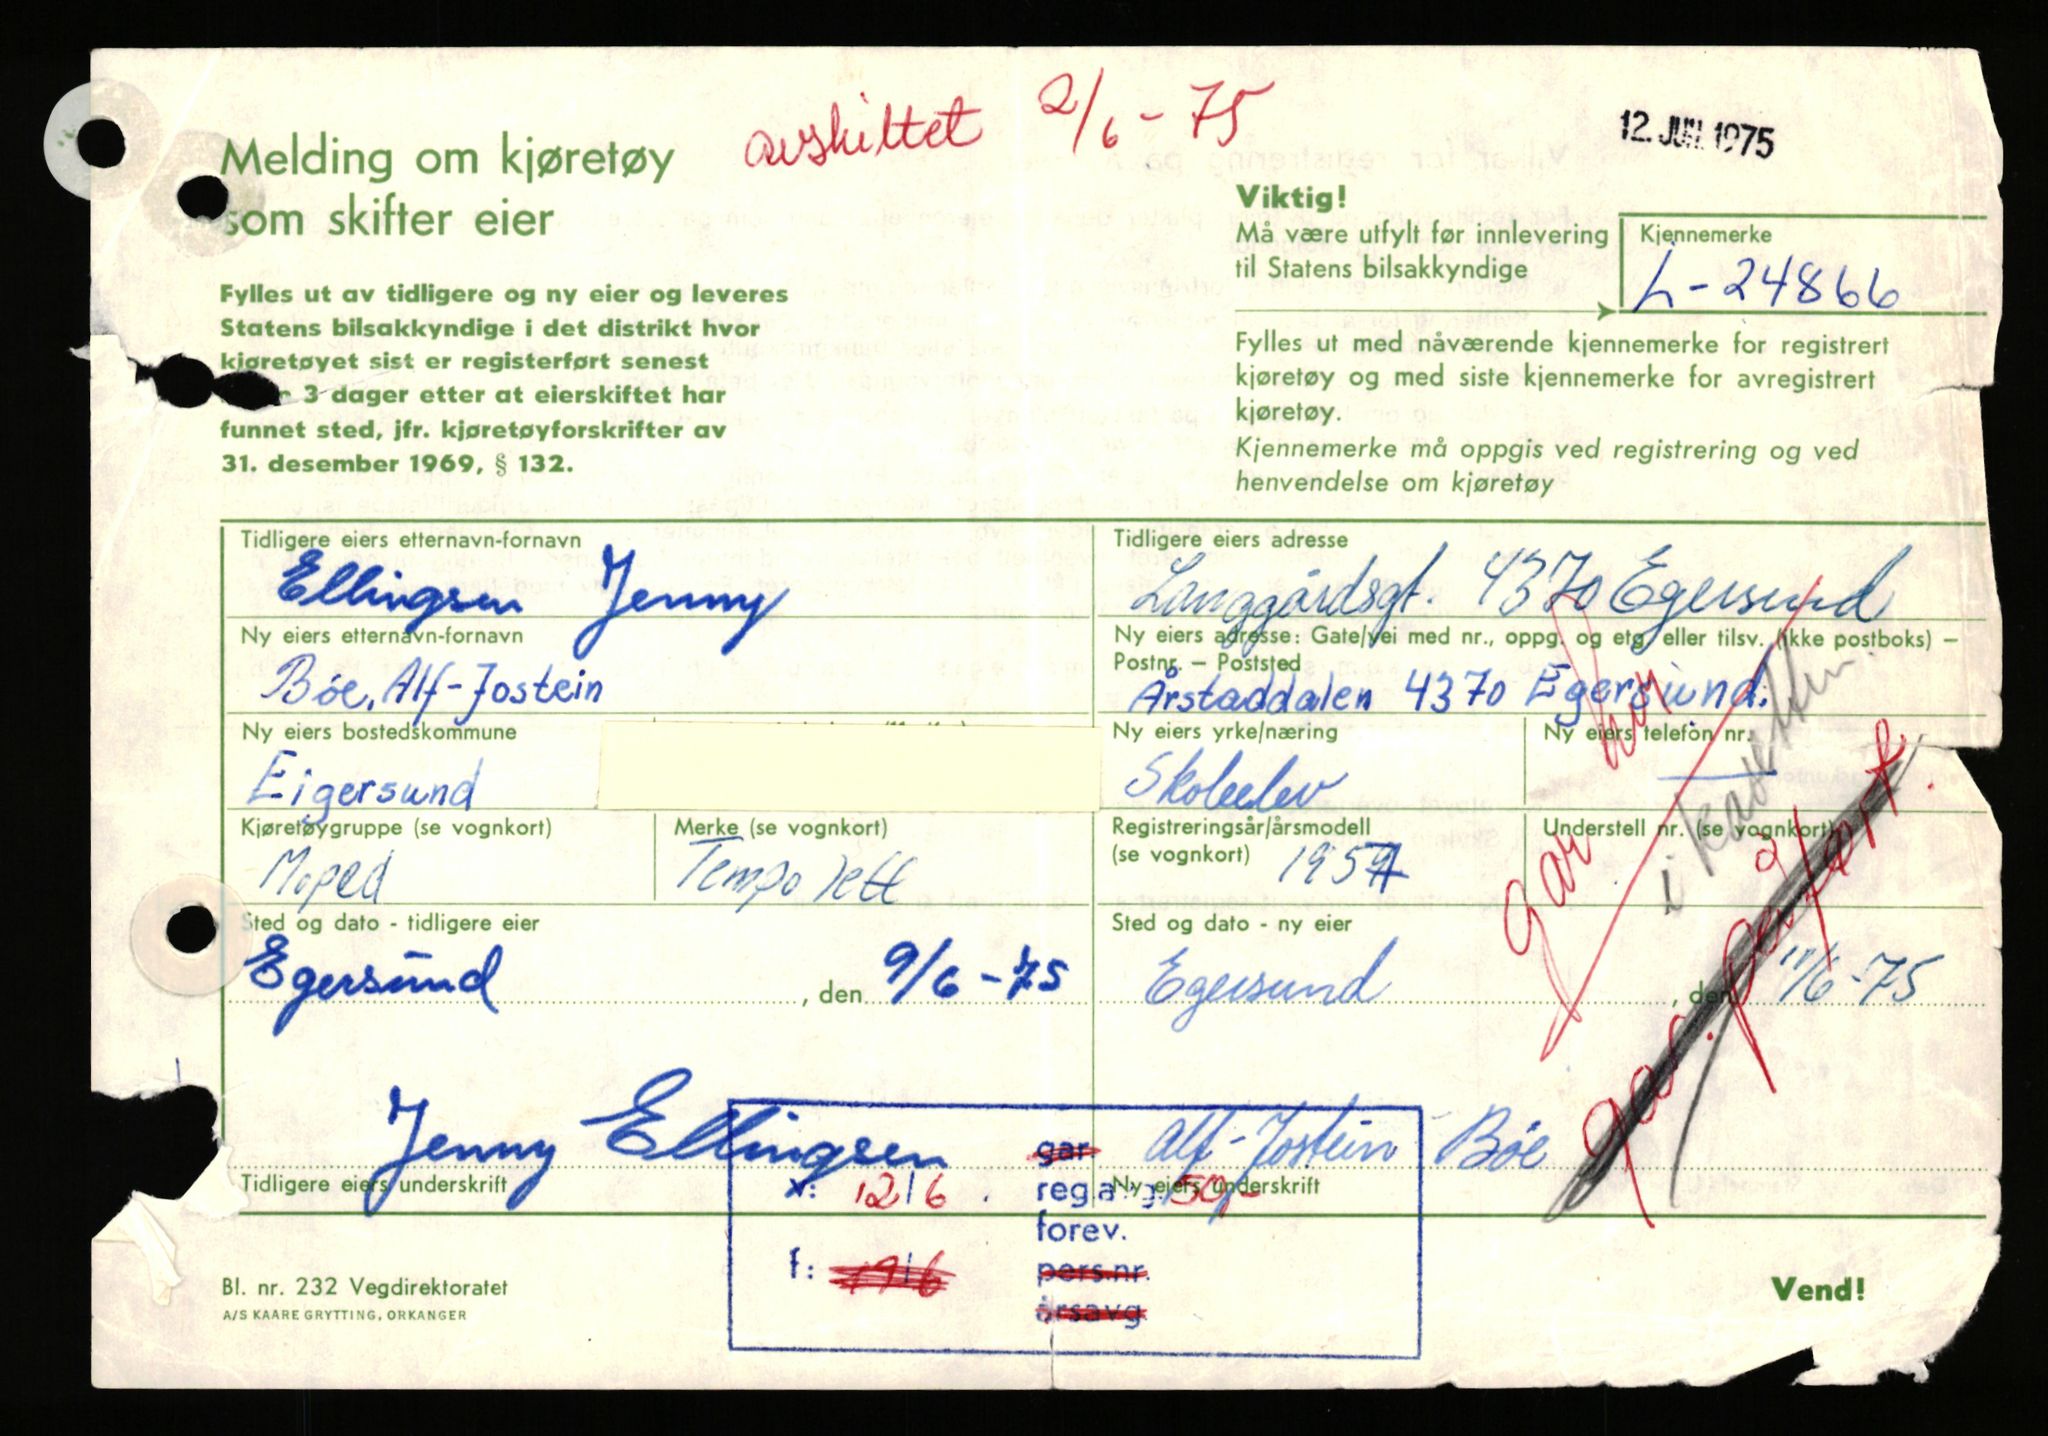 avskiltet 2/6-75
12. JUN. 1975
Melding om kjøretøy
som skifter eier
Fylles ut av tidligere og ny eier og leveres
Statens bilsakkyndige i det distrikt hvor
kjøretøyet sist er registerført senest
3 dager etter at eierskiftet har
funnet sted, jfr. kjøretøyforskrifter av
31. desember 1969, § 132.
Viktig!
Må være utfylt før innlevering
til Statens bilsakkyndige
Kjennemerke
L-24866
Fylles ut med nåværende kjennemerke for registrert
kjøretøy og med siste kjennemerke for avregistrert
kjøretøy.
Kjennemerke må oppgis ved registrering og ved
henvendelse om kjøretøy
Tidligere eiers etternavn-fornavn
Ellingsen Jenny
Tidligere eiers adresse
Langgårdsgt. 4370 Egersund
Ny eiers etternavn-fornavn
Bøe, Alf-Jostein
Ny eiers adresse: Gate/vei med nr., oppg. og etg. eller tilsv. (ikke postboks) –
Postnr. – Poststed
Årstaddalen 4370 Egersund.
Ny eiers bostedskommune
Eigersund
Ny eiers yrke/næring
Skoleelev
Ny eiers telefon nr.
Kjøretøygruppe (se vognkort)
Moped
Merke (se vognkort)
Tempo lett
Registreringsår/årsmodell
(se vognkort) 1957
Understell nr. (se vognkort)
gar
i
gar.
Sted og dato - tidligere eier
Egersund, den 9/6-75
Sted og dato - ny eier
Egersund, den 11/6-75
Jenny Ellingsen
Tidligere eiers underskrift
Alf-Jostein Bøe
Ny eiers underskrift
v: 12/6.
f: 19/6
gar.
reg.avg. 50,-
forev.
pers.nr.
årsavg.
Bl. nr. 232 Vegdirektoratet
A/S KAARE GRYTTING, ORKANGER
Vend!